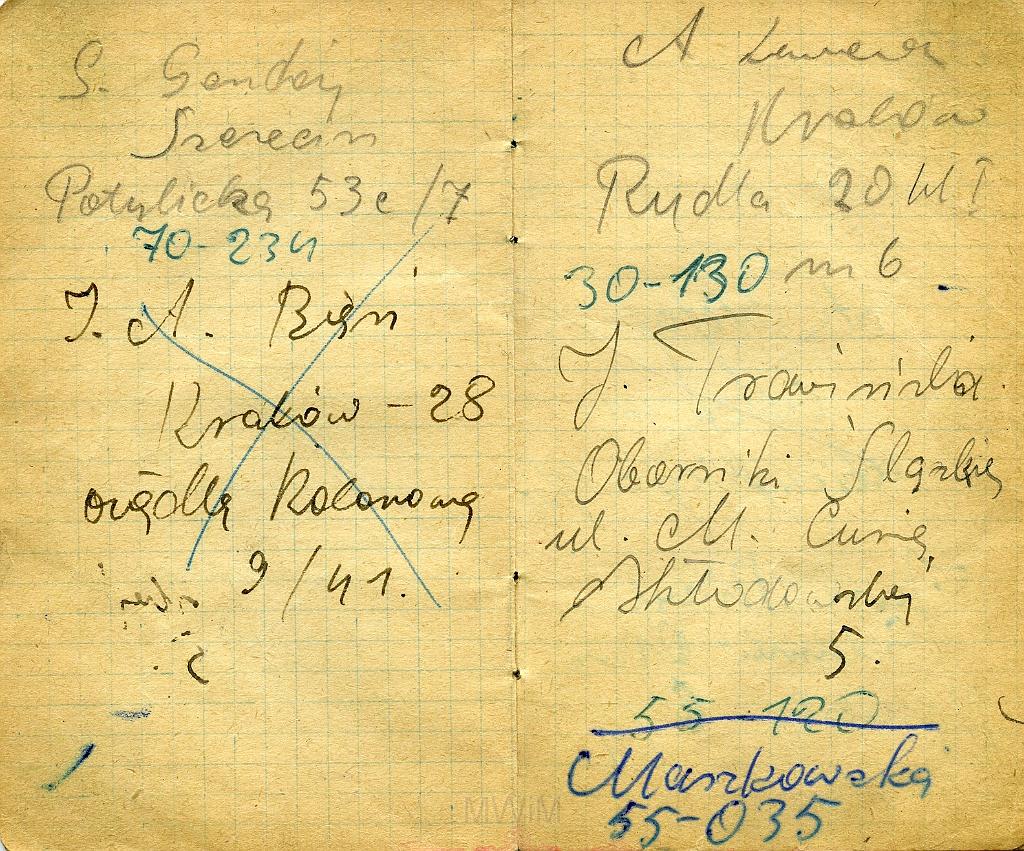 S.
Szczecin
Potulicka 53c/7
70-234
J. A. Bień
Kraków - 28
9/41.
A
Kraków
Rydla 20 kl I
30-130 m 6
J. Trawińska
Oborniki Śląskie
ul. M. Curie
Skłodowskiej
5.
55-120
Maszkowska
55-035
MWiM